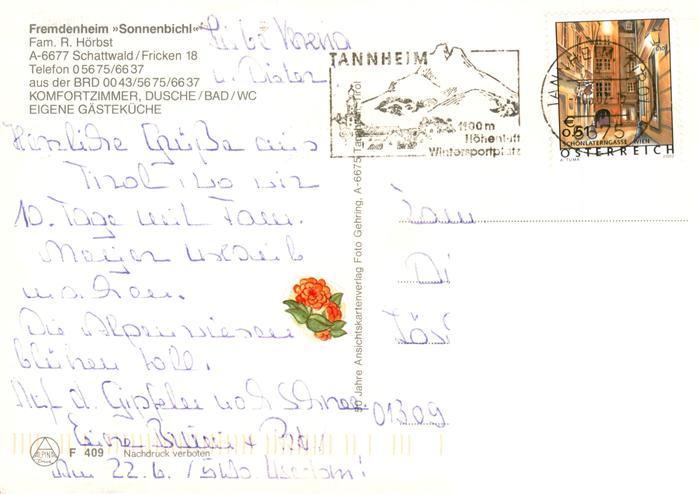 Fremdenheim »Sonnenbichl«
Fam. R. Hörbst
A-6677 Schattwald/Fricken 18
Telefon 05675/6637
aus der BRD 0043/5675/6637
KOMFORTZIMMER, DUSCHE/BAD/WC
EIGENE GÄSTEKÜCHE
Liebe Verena
u. Dieter
Herzliche Grüße aus
Tirol, wo wir
10. Tage mit Fam.
Meyer Urlaub
machen.
Die Alpenwiesen
blühen toll.
Auf d. Gipfeln noch Schnee
Eure
Am 22.6.
F 409 Nachdruck verboten
ALPINA
50 Jahre Ansichtskartenverlag Foto Gehring, A-6675 Tannheim, Tirol
TANNHEIM
1100 m
Höhenluft
Wintersportplatz
€ 0,51
SCHÖNLATERNGASSE, WIEN
ÖSTERREICH
A. TUMA 2002
6675
Fam
Di
01309